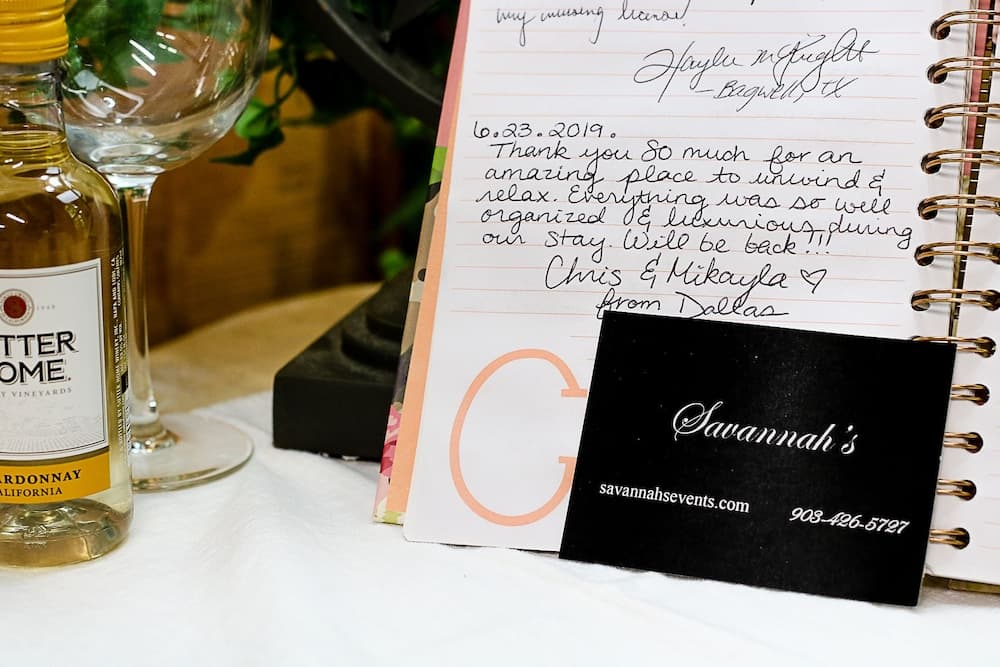 my nursing license!
Haylee McKnight
- Bagwell, TX
6.23.2019.
Thank you SO much for an
amazing place to unwind &
relax. Everything was so well
organized & luxurious during
our stay. Will be back!!!
Chris & Mikayla ♡
from Dallas
C
Savannah's
savannahsevents.com
903-426-5727
TTER
OME.
Y VINEYARDS
RDONNAY
ALIFORNIA